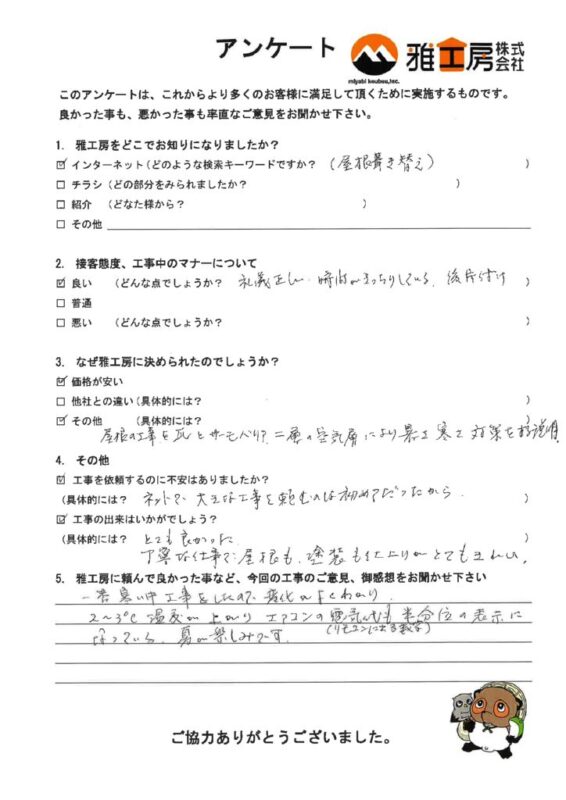 アンケート 雅工房 株式会社
miyabi koubou,inc.
このアンケートは、これからより多くのお客様に満足して頂くために実施するものです。
良かった事も、悪かった事も率直なご意見をお聞かせ下さい。
1. 雅工房をどこでお知りになりましたか?
☑ インターネット(どのような検索キーワードですか? (屋根葺き替え) )
□ チラシ(どの部分をみられましたか? )
□ 紹介 (どなた様から? )
□ その他
2. 接客態度、工事中のマナーについて
☑ 良い (どんな点でしょうか? 礼義正しい・時間がきっちりしている、後片付け )
□ 普通
□ 悪い (どんな点でしょうか? )
3. なぜ雅工房に決められたのでしょうか?
☑ 価格が安い
□ 他社との違い(具体的には? )
☑ その他 (具体的には? )
屋根の工事を瓦とサーモ 二層の空気層により暑さ寒さ対策を説明
4. その他
☑ 工事を依頼するのに不安はありましたか?
(具体的には? ネットで大きな工事を頼むのは初めてだったから。 )
☑ 工事の出来はいかがでしょう?
(具体的には? とても良かった )
丁寧な仕事で屋根も、塗装も仕上りがとてもきれい。
5. 雅工房に頼んで良かった事など、今回の工事のご意見、御感想をお聞かせ下さい
一番寒い中工事をしたので変化がよくわかり
2〜3℃温度が上がりエアコンの電気代も半分位の表示に
(リモコンに出る数字)
なっている。夏が楽しみです。
ご協力ありがとうございました。